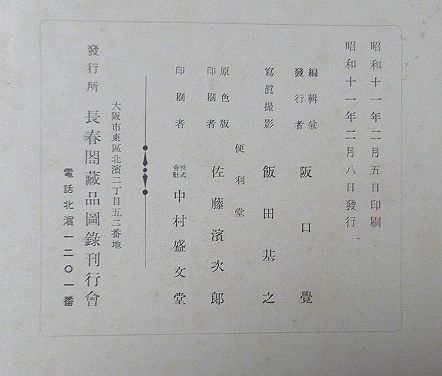 昭和十一年二月五日印刷
昭和十一年二月八日發行
編輯兼
發行者 阪口覺
寫眞撮影 飯田基之
便利堂
原色版
印刷者 佐藤濱次郎
印刷者 株式會社 中村盛文堂
大阪市東區北濱二丁目五二番地
發行所 長春閣藏品圖錄刊行會
電話北濱一二〇一番